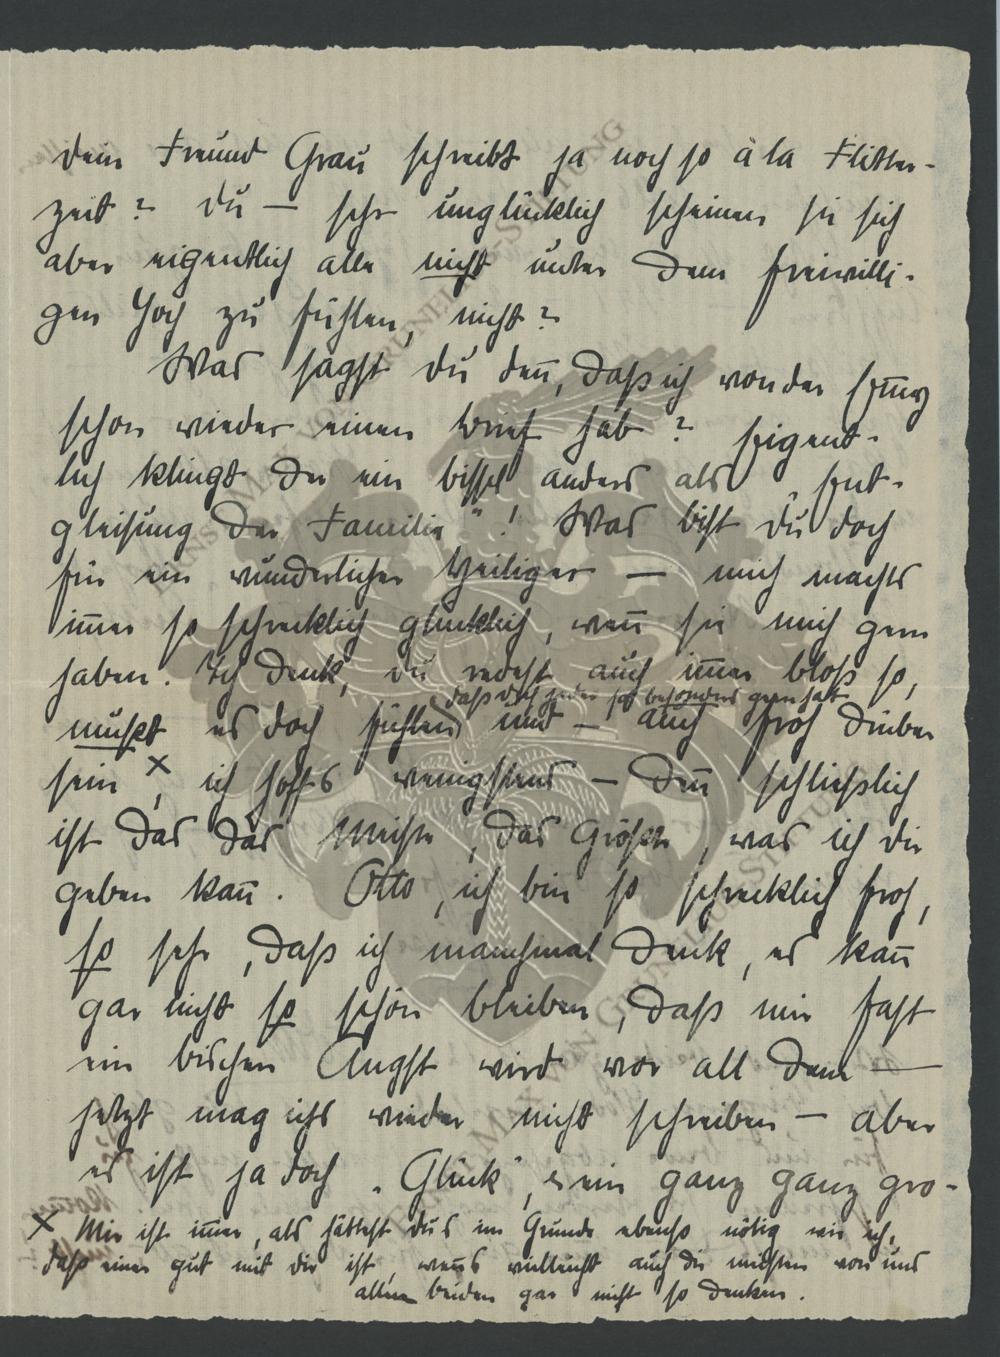 dein Freund Grau schreibt ja noch so à la Flitter-
zeit? Du — sehr unglücklich scheinen sie sich
aber eigentlich alle nicht unter dem freiwilli-
gen Joch zu fühlen, nicht?
Was sagst du deñ, daß ich von der Em̃y
schon wieder einen Brief hab? Eigent-
lich klingt der ein bissel anders als „Ent-
gleisung der Familie"! Was bist du doch
für ein wunderlicher Heiliger — mich machts
im̃er so schrecklich glücklich, weñ sie mich gern
haben. Ich denk, du redest auch im̃er bloß so,
daß dich jeder so besonders gern hat
mußt es doch fühlen und — auch froh drüber
sein ×, ich hoffs wenigstens — deñ schließlich
ist das das Meiste, das Größte, was ich dir
geben kañ. Otto, ich bin so schrecklich froh,
so sehr, daß ich manchmal denk, es kañ
gar nicht so schön bleiben, daß mir fast
ein bischen Angst wird vor all dem —
jetzt mag ichs wieder nicht schreiben — aber
es ist ja doch „Glück", ein ganz ganz gro-
× Mir ist im̃er, als hättest dus im Grunde ebenso nötig wie ich,
daß einer gut mit dir ist, weñs vielleicht auch die meisten von uns
allen beiden gar nicht so denken.
MAX VON GRUNELIUS-STIFTUNG